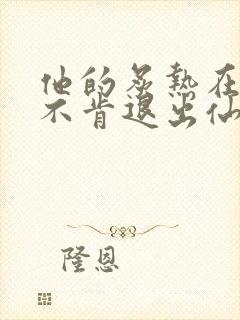 他的炙热在
不肯退出仙
隆恩